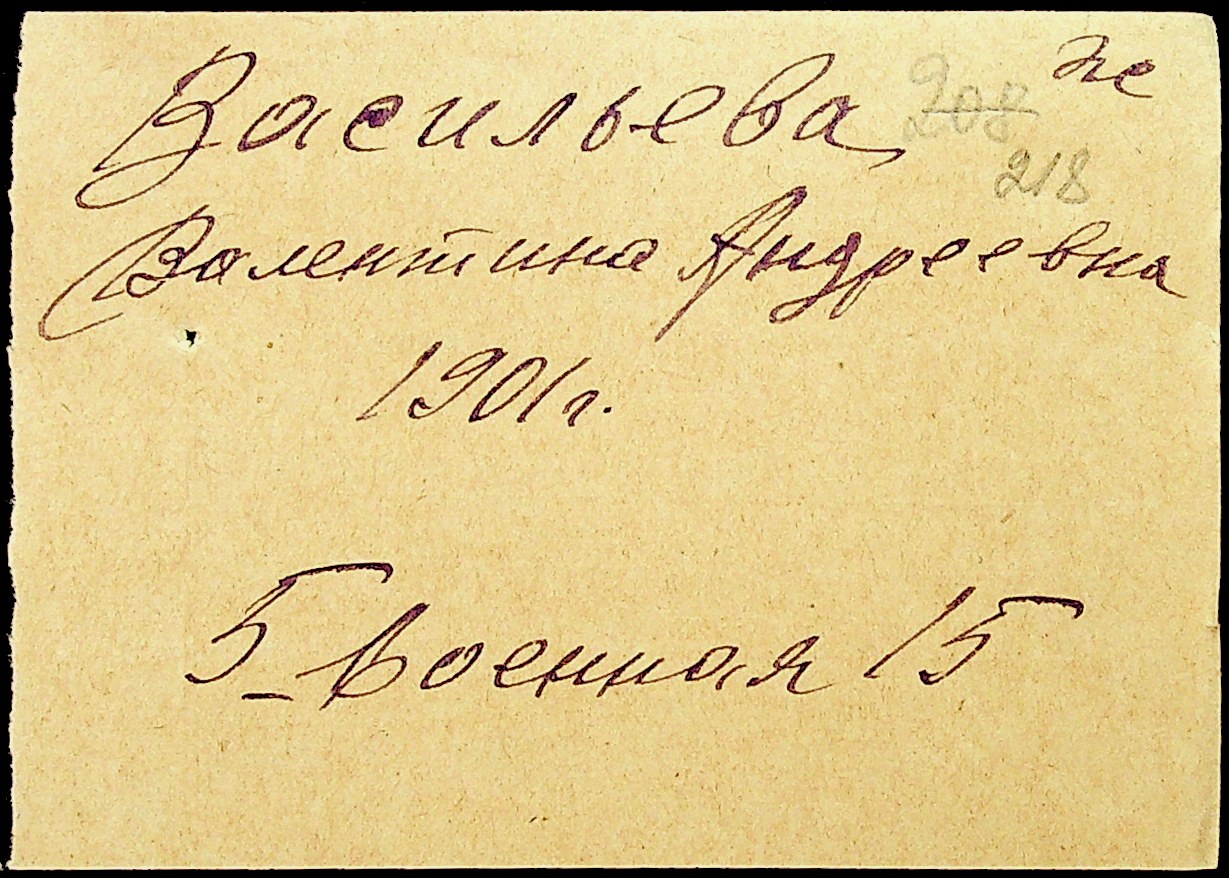 Васильева
208
218
Валентина Андреевна
1901 г.
5-Военная 15